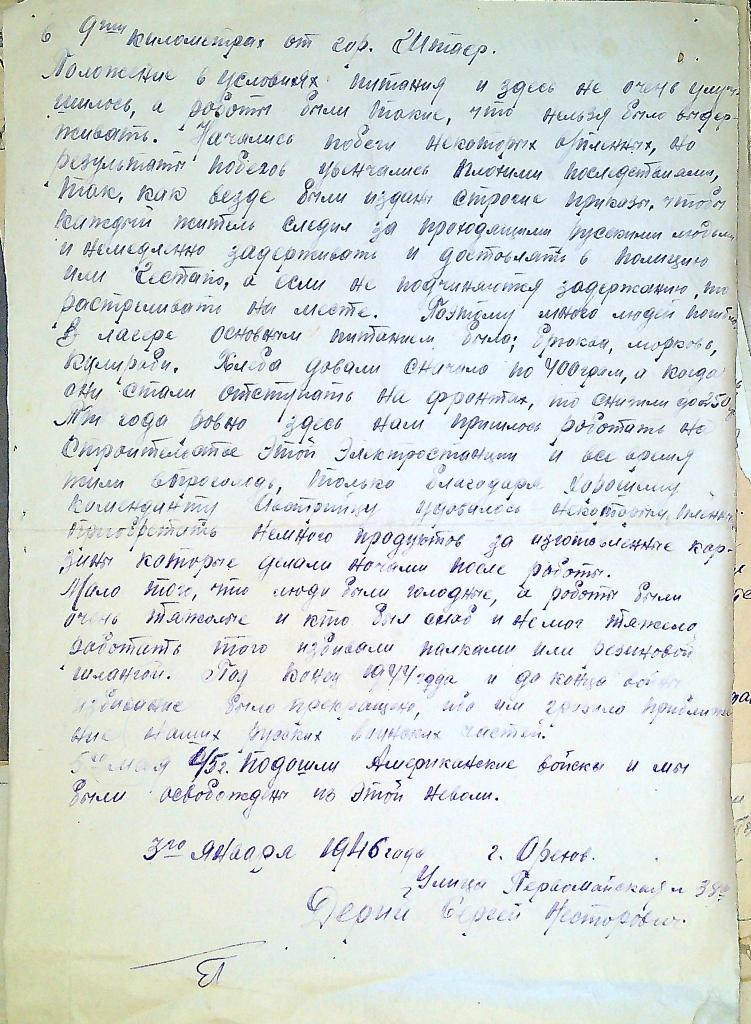 в 9ти километрах от гор. Штаер.
Положение в условиях питания и здесь не очень улуч-
шилось, а работы были такие, что нельзя было выдер-
живать. Начались побеги некоторых пленных, но
результаты побегов увенчались плохими последствиями,
так, как везде были изданы строгие приказы, чтобы
каждый житель следил за проходящими русскими людьми
и немедленно задерживать и доставлять в полицию
или Гестапо, а если не подчиняются задержанию, то
растреливать на месте. Поэтому много людей погибло.
В лагере основным питанием была; Брюква, морковь,
кулираби. Хлеба довали сначала по 400 грам, а когда
они стали отступать на фронтах, то снизили до 250 г.
Три года ровно здесь нам пришлось работать на
строительстве этой Электростанции и все время
жили впроголодь, только благодаря хорошему
коменданту удовалось некоторым
приобретать немного продуктов за изготовленные кор-
зины которые делали ночами после работы.
Мало того, что люди были голодные, а работы были
очень тяжолые и кто был слаб и немог тяжело
работать того избивали палками или резиновой
шлангой. Под конец 1944 года и до конца войны
избивание было прекращено, ибо им грозило приближе-
ние наших Русских воинских частей.
5го мая 45г. Подошли Американские войска и мы
были освобождены из этой неволи.
3го января 1946 года г. Орехов.
Улица Первомайская №
Сергей Несторович.